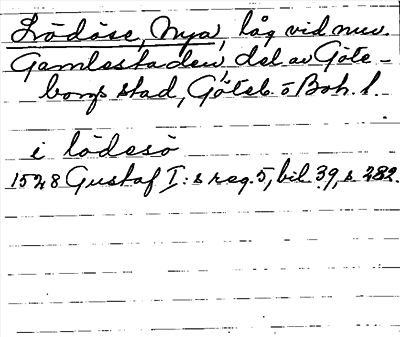 Lödöse, Nya, låg vid nuv.
Gamlestaden, del av Göte-
borgs stad, Göteb. o Boh. l.
i lödesö
1528 Gustaf I:s reg. 5, bil. 39, s 282.